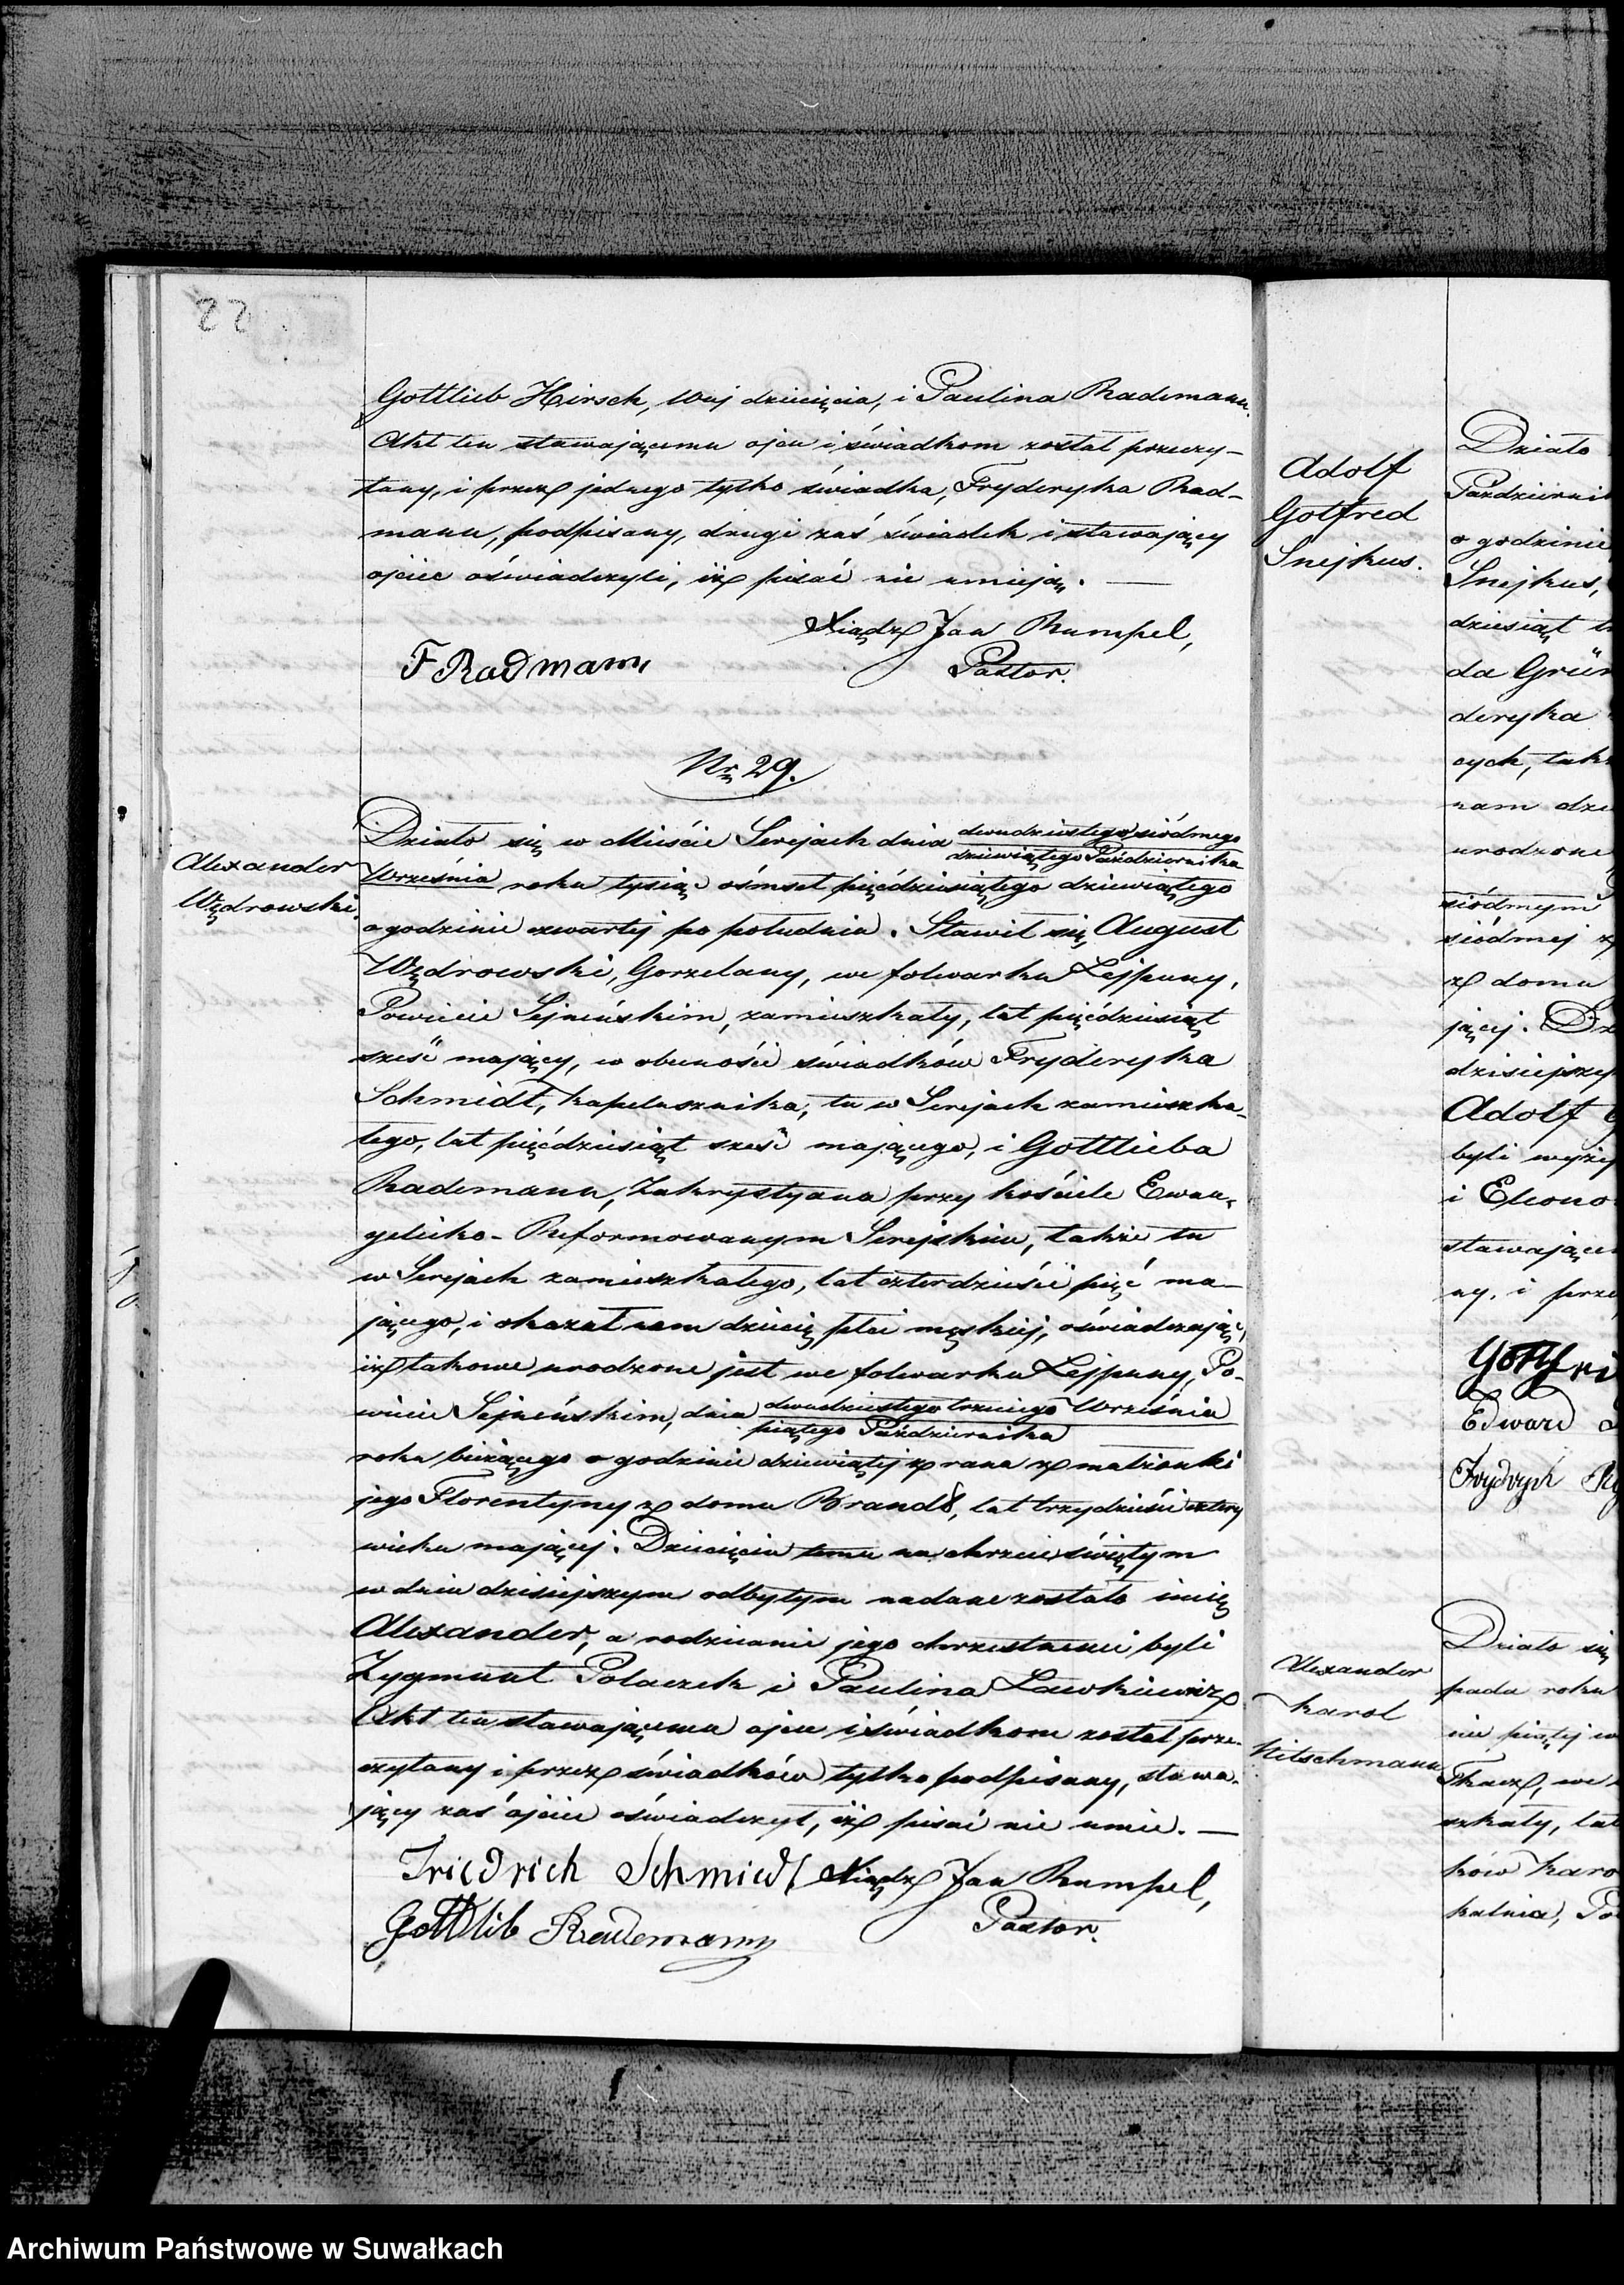 22
Gottlieb Hirsch, Wuj dziecięcia, i Paulina Rademann.
Akt ten stawającemu ojcu i świadkom został przeczy-
tany, i przez jednego tylko świadka, Fryderyka Rad-
mann, podpisany, drugi zaś świadek i stawający
ojciec oświadczyli, iż pisać nie umieją. —
Xiądz Jan Rumpel,
Pastor.
F Radmann
Nr. 29.
Alexander
Wędrowski.
Działo się w Mieście Serejach dnia dwudziestego siódmego
dziewiątego Października
Września roku tysiąc ośmset pięćdziesiątego dziewiątego
o godzinie czwartej po południu. Stawił się August
Wędrowski, Gorzelany, we folwarku Lejpuny,
Powiecie Sejneńskim, zamieszkały, lat pięćdziesiąt
sześć mający, w obecności świadków Fryderyka
Schmidt, kapelusznika, tu w Serejach zamieszka-
łego, lat pięćdziesiąt sześć mającego, i Gottlieba
Rademann, Zakrystyana przy kościele Ewan-
gelicko-Reformowanym Serejskim, także tu
w Serejach zamieszkałego, lat czterdzieści pięć ma-
jącego, i okazał nam dziecię płci męskiej, oświadczając,
iż takowe urodzone jest we folwarku Lejpuny, Po-
wiecie Sejneńskim, dnia dwudziestego trzeciego Września
piątego Października
roku bieżącego o godzinie dziewiątej z rana z małżonki
jego Florentyny z domu Brandt, lat trzydzieści cztery
wieku mającej. Dziecięciu temu na chrzcie świętym
w dniu dzisiejszym odbytym nadane zostało imię
Alexander, a rodzicami jego chrzestnemi byli
Zygmunt Polaczek i Paulina Ławkiewicz.
Akt ten stawającemu ojcu i świadkom został prze-
czytany i przez świadków tylko podpisany, stawa-
jący zaś ojciec oświadczył, iż pisać nie umie. —
Friedrich Schmidt Xiądz Jan Rumpel,
Gottlib Rademann Pastor.
Adolf
Gotfred
Snejkus.
Działo
Październik
o godzinie
Snejkus,
dziesiąt
da Grün
deryka
cych, tak
nam dzie
urodzone
siódmym
siódmej z
z domu
jącej. Dz
dzisiejszy
Adolf G
byli wyżej
i Eleono
stawające
ny, i prze
Gottfri
Edward
Frydrych
Alexander
Karol
Nitschmann
Działo się
pada roku
nie piątej w
Tkacz, we
szkały, lat
ków Karo
kalnia, Po
Archiwum Państwowe w Suwałkach